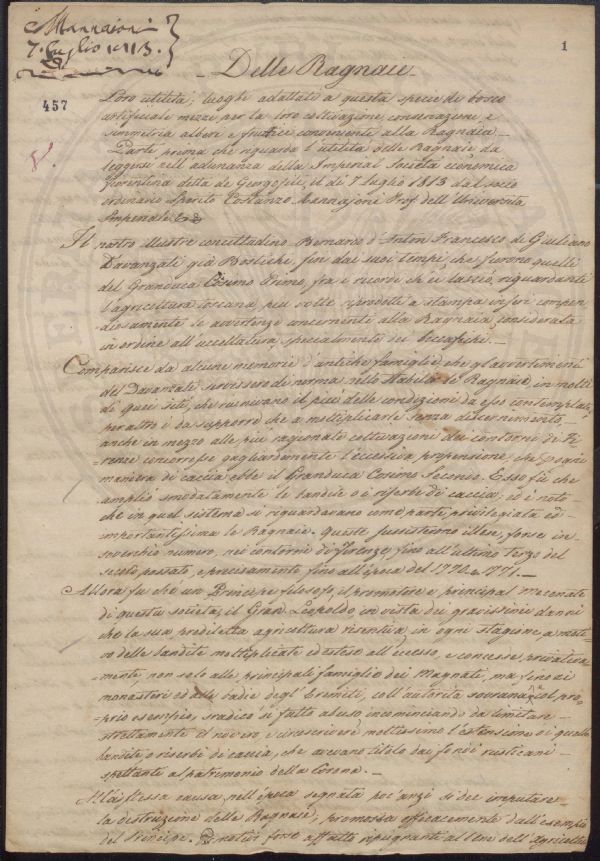 Mannajoni
7. Luglio 1813.
1
457
Delle Ragnaie
Loro utilità; luoghi adattati a questa specie di bosco
artificiale mezzi per la loro coltivazione, conservazione e
simmetria alberi e frutici convenienti alla Ragnaia.
Parte prima che riguarda l'utilità delle Ragnaie da
leggersi nell'adunanza della Imperial Società economica
fiorentina detta de Georgofili, il dì 7 luglio 1813 dal socio
ordinario Sperito Costanzo Mannajoni Prof. dell'Università
Imperiale
Il nostro illustre concittadino Bernardo d'Anton Francesco di Giuliano
Davanzati già Bostichi, fin dai suoi tempi che furono quelli
del Granduca Cosimo Primo, fra i ricordi che ci lasciò, riguardanti
l'agricoltura toscana, più volte riprodotti a stampa inserì compen
=diosamente le avvertenze concernenti alla Ragnaia, considerata
in ordine all'uccellatura, specialmente dei beccafichi.
Comparisce da alcune memorie d'antiche famiglie che gl'avvertimenti
del Davanzati servissero di norma nello stabilir le Ragnaie, in molti
di quei siti, che riunivano il più delle condizioni da esso contemplate,
peraltro è da supporre che a moltiplicarle senza discernimento
anche in mezzo alle più razionali coltivazioni dei contorni di Fi
=renze concorresse gagliardamente l'eccessiva propensione, che p ogni
maniera di caccia ebbe il Granduca Cosimo Secondo. Esso fù che
ampliò smodatamente le bandite o riserbe di caccia, ed è noto
che in quel sistema si riguardavano come parte privilegiata ed
importantissima le Ragnaie. Queste sussisterono illese, forse in
soverchio numero, nei contorni di Firenze, fino all'ultimo terzo del
secolo passato, e precisamente fino all'epoca del 1770. e 1771.
Allora fu che un Principe filosofo, il promotore e principal mecenate
di questa società, il Gran Leopoldo in vista dei gravissimi danni
che la sua prediletta agricoltura risentiva, in ogni stagione a moti
vo delle bandite moltiplicate ed estese all'eccesso, e concesse privativa
=mente, non solo alle principali famiglie dei Magnati, ma fino ai
monasteri ed alle badie degl'Eremiti, coll'autorità sovrana, e col pro=
=prio esempio, sradicò sì fatto abuso incominciando da limitare
strettamente il novero, e circoscrivere moltissimo l'estensione di quelle
bandite o riserbi di caccia, che avevano titolo dai fondi rusticani
spettanti al patrimonio della Corona.
Alla stessa causa, nell'epoca segnata poc'anzi si dee imputare
la distruzione delle Ragnaie, promossa efficacemente dall'esempio
del Principe. natìi forse affatto ripugnanti al bene dell'Agricoltu